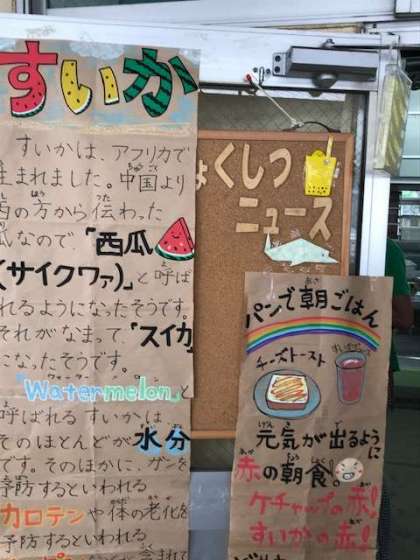 すいか
すいかは、アフリカで
生まれました。中国より
西の方から伝わった
瓜なので、「西瓜
(サイクワァ)」と呼ば
れるようになったそうです。
それがなまって、「スイカ
になったそうです。
ウォーターメロン
"Watermelon"と
呼ばれるすいかは、
そのほとんどが水分
です。そのほかに、ガンを
予防するといわれる
カロテンや体の老化を
予防するといわれる
ょくしつ
ニュース
パンで朝ごはん
チーズトースト
元気が出るように
赤の朝食。
ケチャップの赤!
すいかの赤!